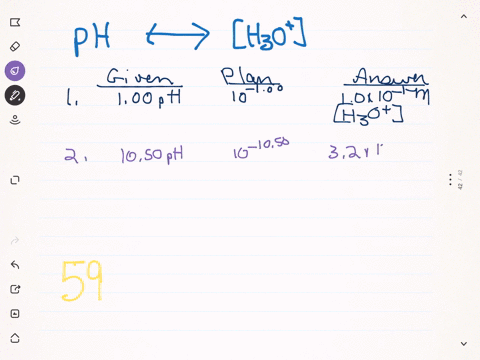 pH ⟷ [H₃O⁺]
Given Plan Answer
1. 1.00 pH 10⁻¹·⁰⁰ 1.0x10⁻¹M
[H₃O⁺]
2. 10.50 pH 10⁻¹⁰·⁵⁰ 3.2x1
59